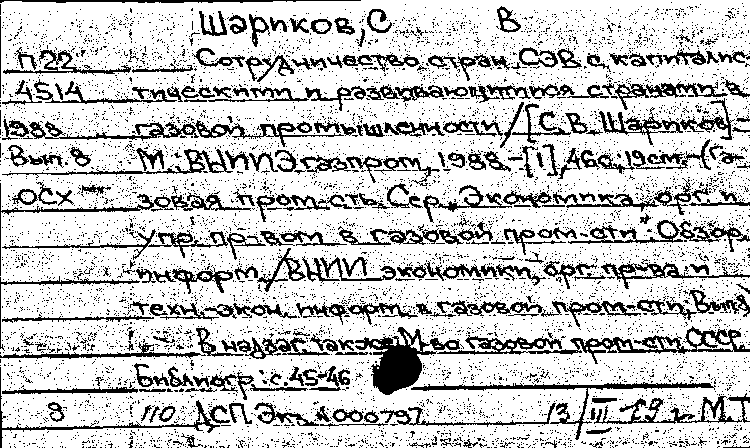 Шариков, С В
П22 Сотрудничество стран СЭВ с капиталис-
4514 тическими и развивающимися странами в
1988 газовой промышленности / [С. В. Шариков] -
Вып. 8 М.: ВНИИЭгазпром, 1988. - [1], 46 с.; 19 см. - (Га-
ОСХ зовая пром-сть. Сер. „Экономика, орг. и
упр. пр-вом в газовой пром-сти“: Обзор.
информ. / ВНИИ экономики, орг. пр-ва и
техн.-экон. информ. в газовой пром-сти; Вып. 8)
В надзаг. также: М-во газовой пром-сти СССР.
Библиогр.: с. 45-46
9 110 ДСП. Экз. 4000797. 13/III-89 г. М.Т